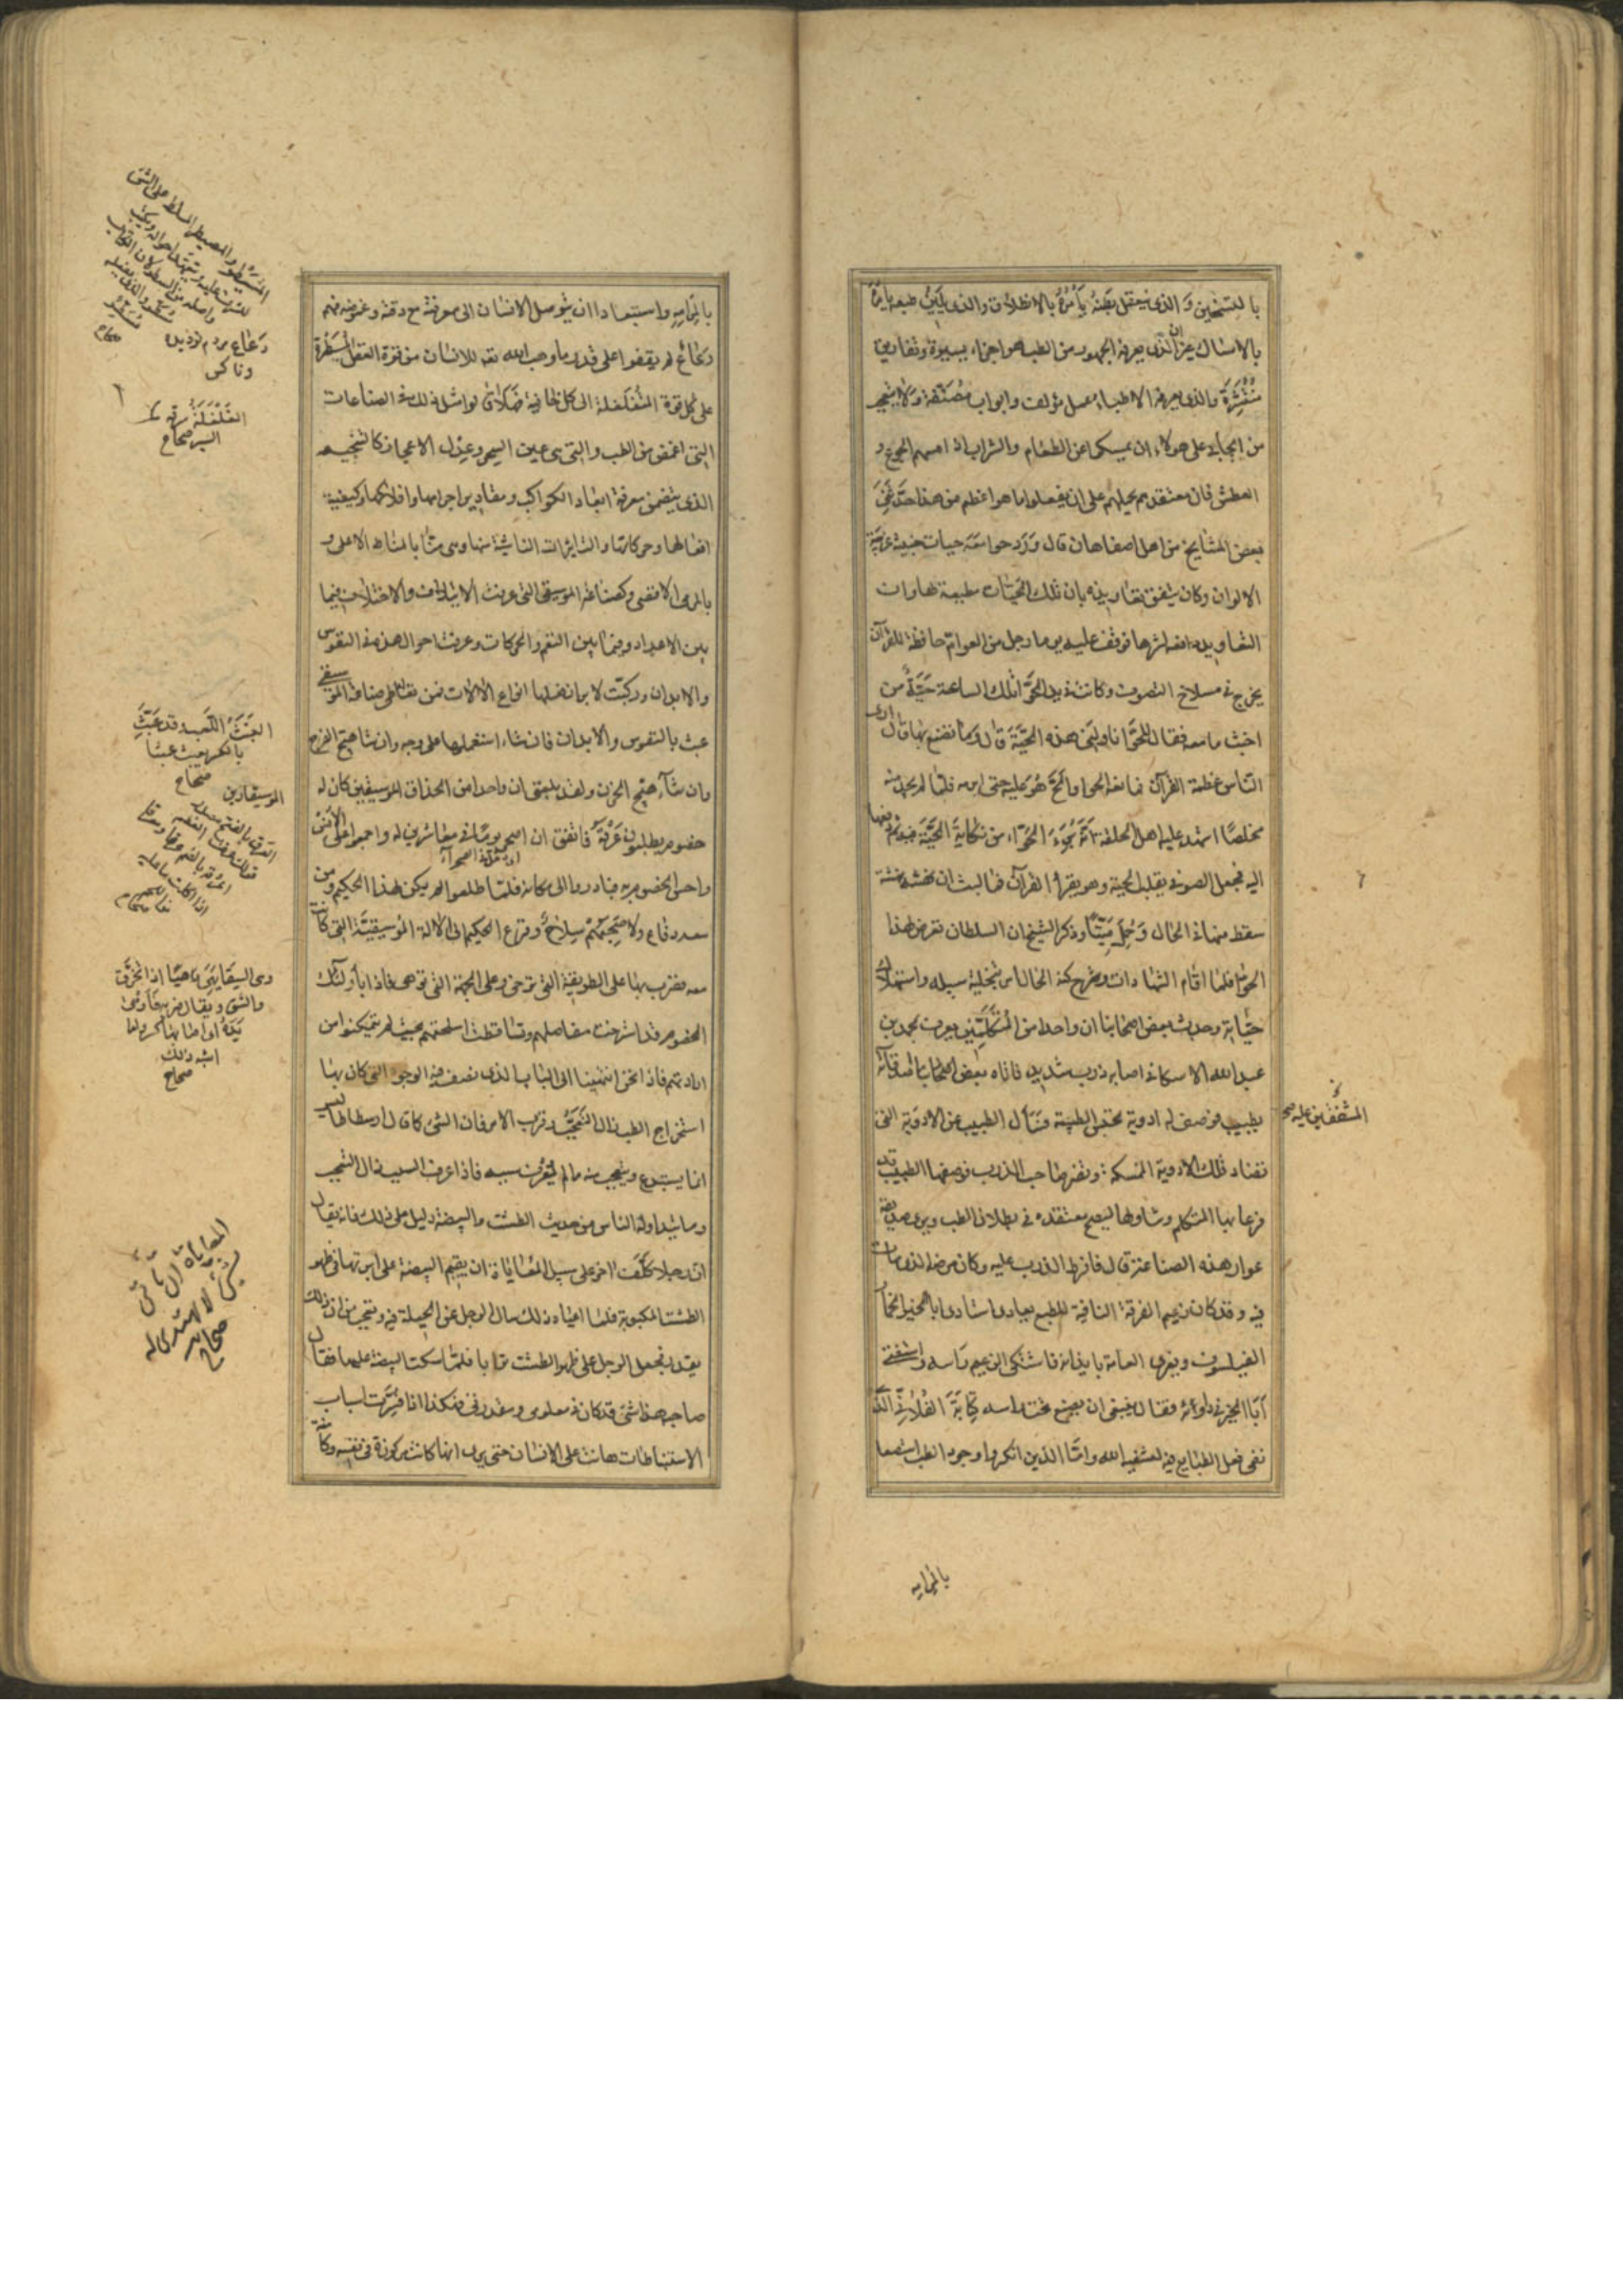 بالتسخين والذي يعتقل بطنه يأمره بالانطلاق والذي يلين طبعه يأمره
بالامساك غير ان الذي يعرفه الجمهور من الطب هو اجزاء يسيرة وتفاريق
منتشرة والذي يعرفه الاطباء عمل مؤلف وابواب مصنفة ولا
من على هولاء ان يمسكوا عن الطعام والشراب اذا امسهم الجوع و
العطش فان معتقدهم يحملهم على ان يفعلوا ما هو اعظم من هذا حدثني
بعض المشايخ من اهل اصفاهان قال ورد حوا معه حيات خبيثة غريبة
الالوان وكان ينفق تعاويذه بان تلك الحيات طبيعة هاوات
التعاويذ افسدتها فوقف عليه يوما رجل من العوام حافظة للقرآن
يخرج في مسلاخ التصوف وكانت بيد الحوا تلك الساعة حية من
اخبث ما معه فقال للحوا ناولني هذه الحية قال وما تصنع بها قال ارى
الناس عظمة القرآن فمانعه الحوا والح هو عليه حتى ابرمه فلما لم يجد منه
مخلصا اشهد عليه اهل الحلقة انه بريء الحواء من نكاية الحية ثم دفعها
اليه فجعل الصوفي يقلب الحية وهو يقرأ القرآن فما لبث ان نهشته نهشة
سقط منها في الحال وحمل ميتا وذكر الشيخ ان السلطان تعرض لهذا
الحوا فلما اقام الشهادات وشرح كنه الحال امر بتخلية سبيله واستملاك
حياته وحدث بعض اصحابنا ان واحدا من المتكلمين يعرف بمحمد بن
عبد الله الاسكافي اصابه ذرب شديد فاتاه بعض اصحابنا اصدقائه
المشفقين عليه صح
بطبيب فوصف له ادوية تحبس الطبيعة فسأل الطبيب عن الادوية التي
تضاد تلك الادوية الممسكة وتضر صاحب الذرب فوصفها الطبيب له
فدعا بها المتكلم وتناولها ليصح معتقده في بطلان الطب ويرى صديقه
عوار هذه الصناعة قال فافرط الذرب عليه وكان مرضه الذي مات
فيه وقد كان زعيم الفرقة النافية للطبع يعادي استادي ابا الخير الخمار
الفيلسوف ويغري العامة بايذائه فاشتكى الزعيم راسه واستفتى
ابا الخير في دوائه فقال ينبغي ان يضع تحت راسه كتابه الفلاني الذي
نفى فعل الطبايع فيه ليشفيه الله واما الذين انكروا وجود الطب استصعابا
بالمرايه
واستبعادا ان يتوصل الانسان الى معرفته مع دقته وغموضه فهم
رعاع لم يقفوا على قدر ما وهب الله تعه للانسان من قوة العقل المسيطرة
على كل قوة المتغلغلة الى كل خافية ضلات لو امثل في ذلك في الصناعات
التي اغمض من الطب والتي هي عين السحر وعدل الاعجاز كالتنجيم
الذي يتضمن معرفة ابعاد الكواكب ومقادير اجرامها وافلاكها وكيفية
افعالها وحركاتها والتاثيرات الناشئة منها وهي منا بالمناط الاعلى و
بالمرمى الاقصى وكصناعة الموسيقى التي عرفت الايتلاف والاختلاف فيما
بين الاعداد وفيما بين النغم والحركات وعرفت احوال هذه في النفوس
والابدان وركبت لابرازها انواع الالات فمن تعاطى صناعة الموسيقى
عبث بالنفوس والابدان فان شاء استعملها على وجه وان شا هيج الفرح
وان شآء هيج الحزن ولقد بلغني ان واحدا من الحذاق الموسيقيين كان له
خصوم يطلبون غرته فاتفق ان اصحر يوما في معاشرين له واجمعوا على الانس
واحس الخصوم به فبادروا الى مكانه فلما طلعوا لم يكن لهذا الحكيم ومن
معه دفاع ولا صحبهم سلاح وفزع الحكيم الى الالة الموسيقية التي كانت
معه فضرب بها على الطريقة التي ترخي وعلى الجهة التي توهي فاذا باولئك
الخصوم قد استرخت مفاصلهم وتساقطت اسلحتهم بحيث لم يتمكنوا من
ارادتهم فاذا نحن انتهينا الى الباب الذي نصف فيه الوجوه التي كان بها
استخراج الطب زال التعجب وقرب الامر فان الشئ كما قال ارسطاطاليس
انما يستبدع ويتعجب منه ما لم يعرف سببه فاذا عرف السبب زال التعجب
وما يتداوله الناس من حديث الطشت والبيضة دليل على ذلك فانه يقال
ان رجلا كلف اخر على سبيل المعاياة ان يقيم البيضة على ابرتها في ظهر
الطشت المكبوبة فلما اعياه ذلك سال الرجل عن الحيلة فيه وتعجب من ان ذلك
يقدر فجعل الرجل على ظهر الطشت ترابا فلما امسكت البيضة عليها فقال
صاحبه هذا شئ قد كان في معلومي ومقدرتي فهكذا اذا فسرت اسباب
الاستنباطات هانت على الانسان حتى يرى انها كانت مركوزة في نفسه وكانت
المسيطر والمصيطر المسلط على الشئ
ليشرف عليه ويتعهد احواله ويكتب
عمله واصله من السطر لان الكتاب
مسطر والذي يفعله
مسطر ومسيطر
صحاح
رعاع مردم فرومايه
وناكس
الغلغلة سرعة
السير صحاح
العبث اللعب وقد عبث
بالكسر يعبث عبثا
صحاح
وهي السقا يهي وهيا اذا تخرق
وانشق ويقال ضربه فاوهى
يده اي اصابها كسر او ما
اشبه ذلك
صحاح
المعاياة ان تاتي
بشئ لا يهتدى له
صحاح